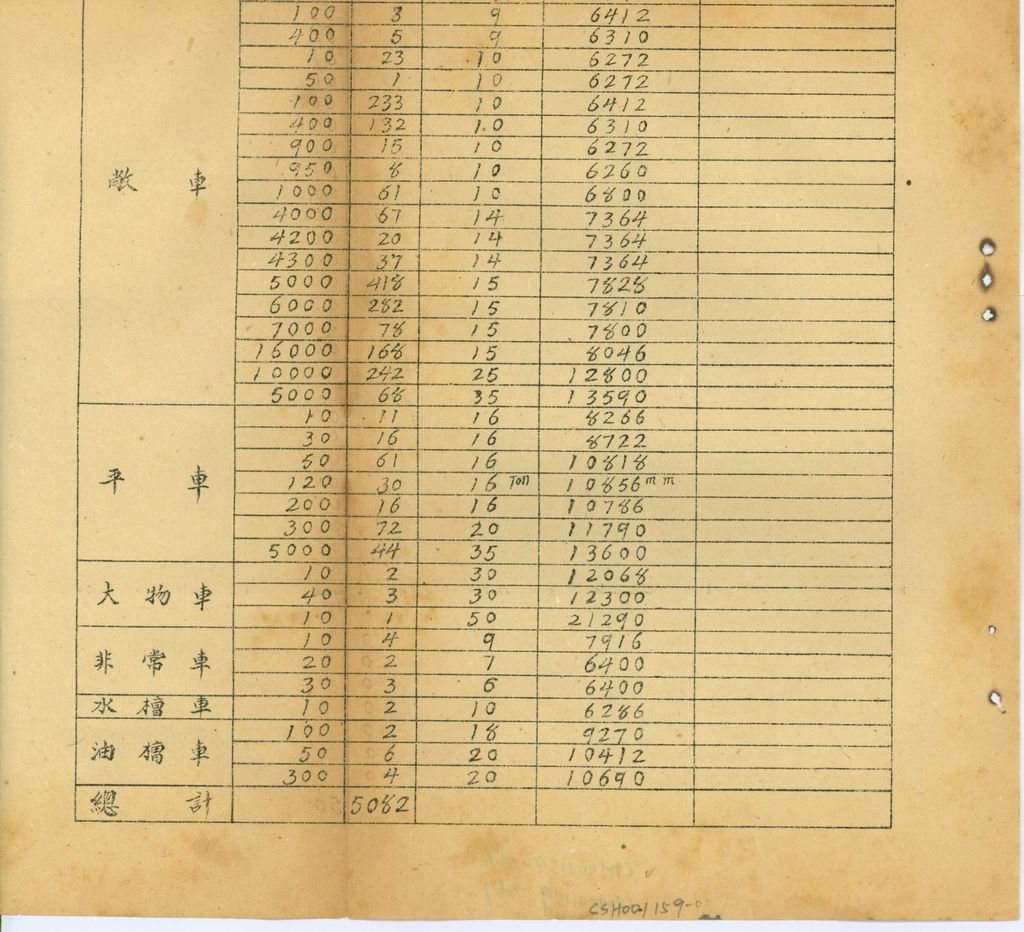 100 3 9 6412
400 5 9 6310
10 23 10 6272
50 1 10 6272
100 233 10 6412
400 132 10 6310
900 15 10 6272
敞車 950 8 10 6260
1000 61 10 6800
4000 67 14 7364
4200 20 14 7364
4300 37 14 7364
5000 418 15 7828
6000 282 15 7810
7000 78 15 7800
16000 168 15 8046
10000 242 25 12800
5000 68 35 13590
10 11 16 8266
30 16 16 8722
50 61 16 10818
平車 120 30 16 Ton 10856 mm
200 16 16 10786
300 72 20 11790
5000 44 35 13600
10 2 30 12068
大物車 40 3 30 12300
10 1 50 21290
10 4 9 7916
非常車 20 2 7 6400
30 3 6 6400
水檣車 10 2 10 6286
100 2 18 9270
油檣車 50 6 20 10412
300 4 20 10690
總計 5082